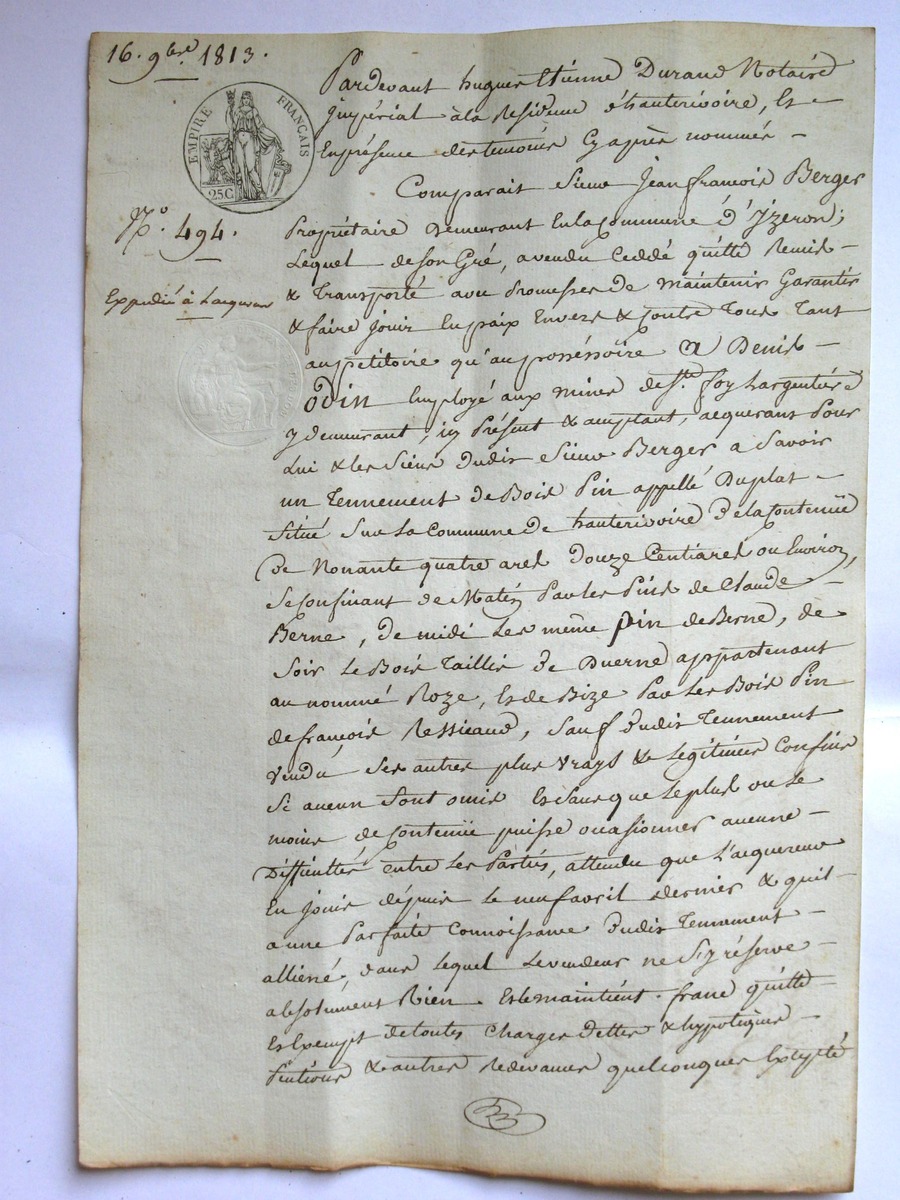 16. 9bre 1813.
EMPIRE FRANÇAIS
25C
N.o 494.
Expédié à l'acquereur
Pardevant hugues Etienne Durand Notaire
jmpérial à la Residence d'hauterivoire, Et
En présence des temoins Cy après nommés
Comparait Sieur Jean françois Berger
Propriétaire Demeurant En la Commune d'Yzeron;
Lequel de son Gré, a vendu Ceddé quitté Remis
& Transporté avec Promesse De maintenir Garantir
& faire jouir En paix Envers & Contre Tous Tant
au petitoire qu'au posséssoire A Denis
Odin Employé aux mines de Ste foy Largentière
y demeurant, icy Présent & acceptant, acquerant Pour
Lui & les Siens dudit Sieur Berger a Savoir
un Tennement de Bois Pin appellé Duplat
Situé Sur La Commune De hauterivoire De la Contenüe
De Nonante quatre ares Douze Centiares ou Environ,
Se Confinant de Matin Par les Pins de Claude
Berne, De midi Les même pin de Berne, de
Soir Le Bois Taillis De Duerne appartenant
au nommé Roze, Et de Bize Par Les Bois Pin
de françois Ressicaud, Sauf dudit Tennement
vendu Ses autres plus vrays & Légitimes Confins
Si aucun Sont omis Et Sans que Le plus ou Le
moins de Contenüe puisse occasionner aucune
Difficultés entre Les Parties, attendu que L'acquereur
En jouit dépuis Le neuf avril dernier & qu'il
a une Parfaite Connoissance Dudit Tennament
alliené, dans Lequel Le vendeur ne S'y réserve
absolument Rien. Et le maintient franc quitte
Et Exempt de toutes Charges Dettes & hypoteques
Pentions & autres Redevances quelconques Excepté